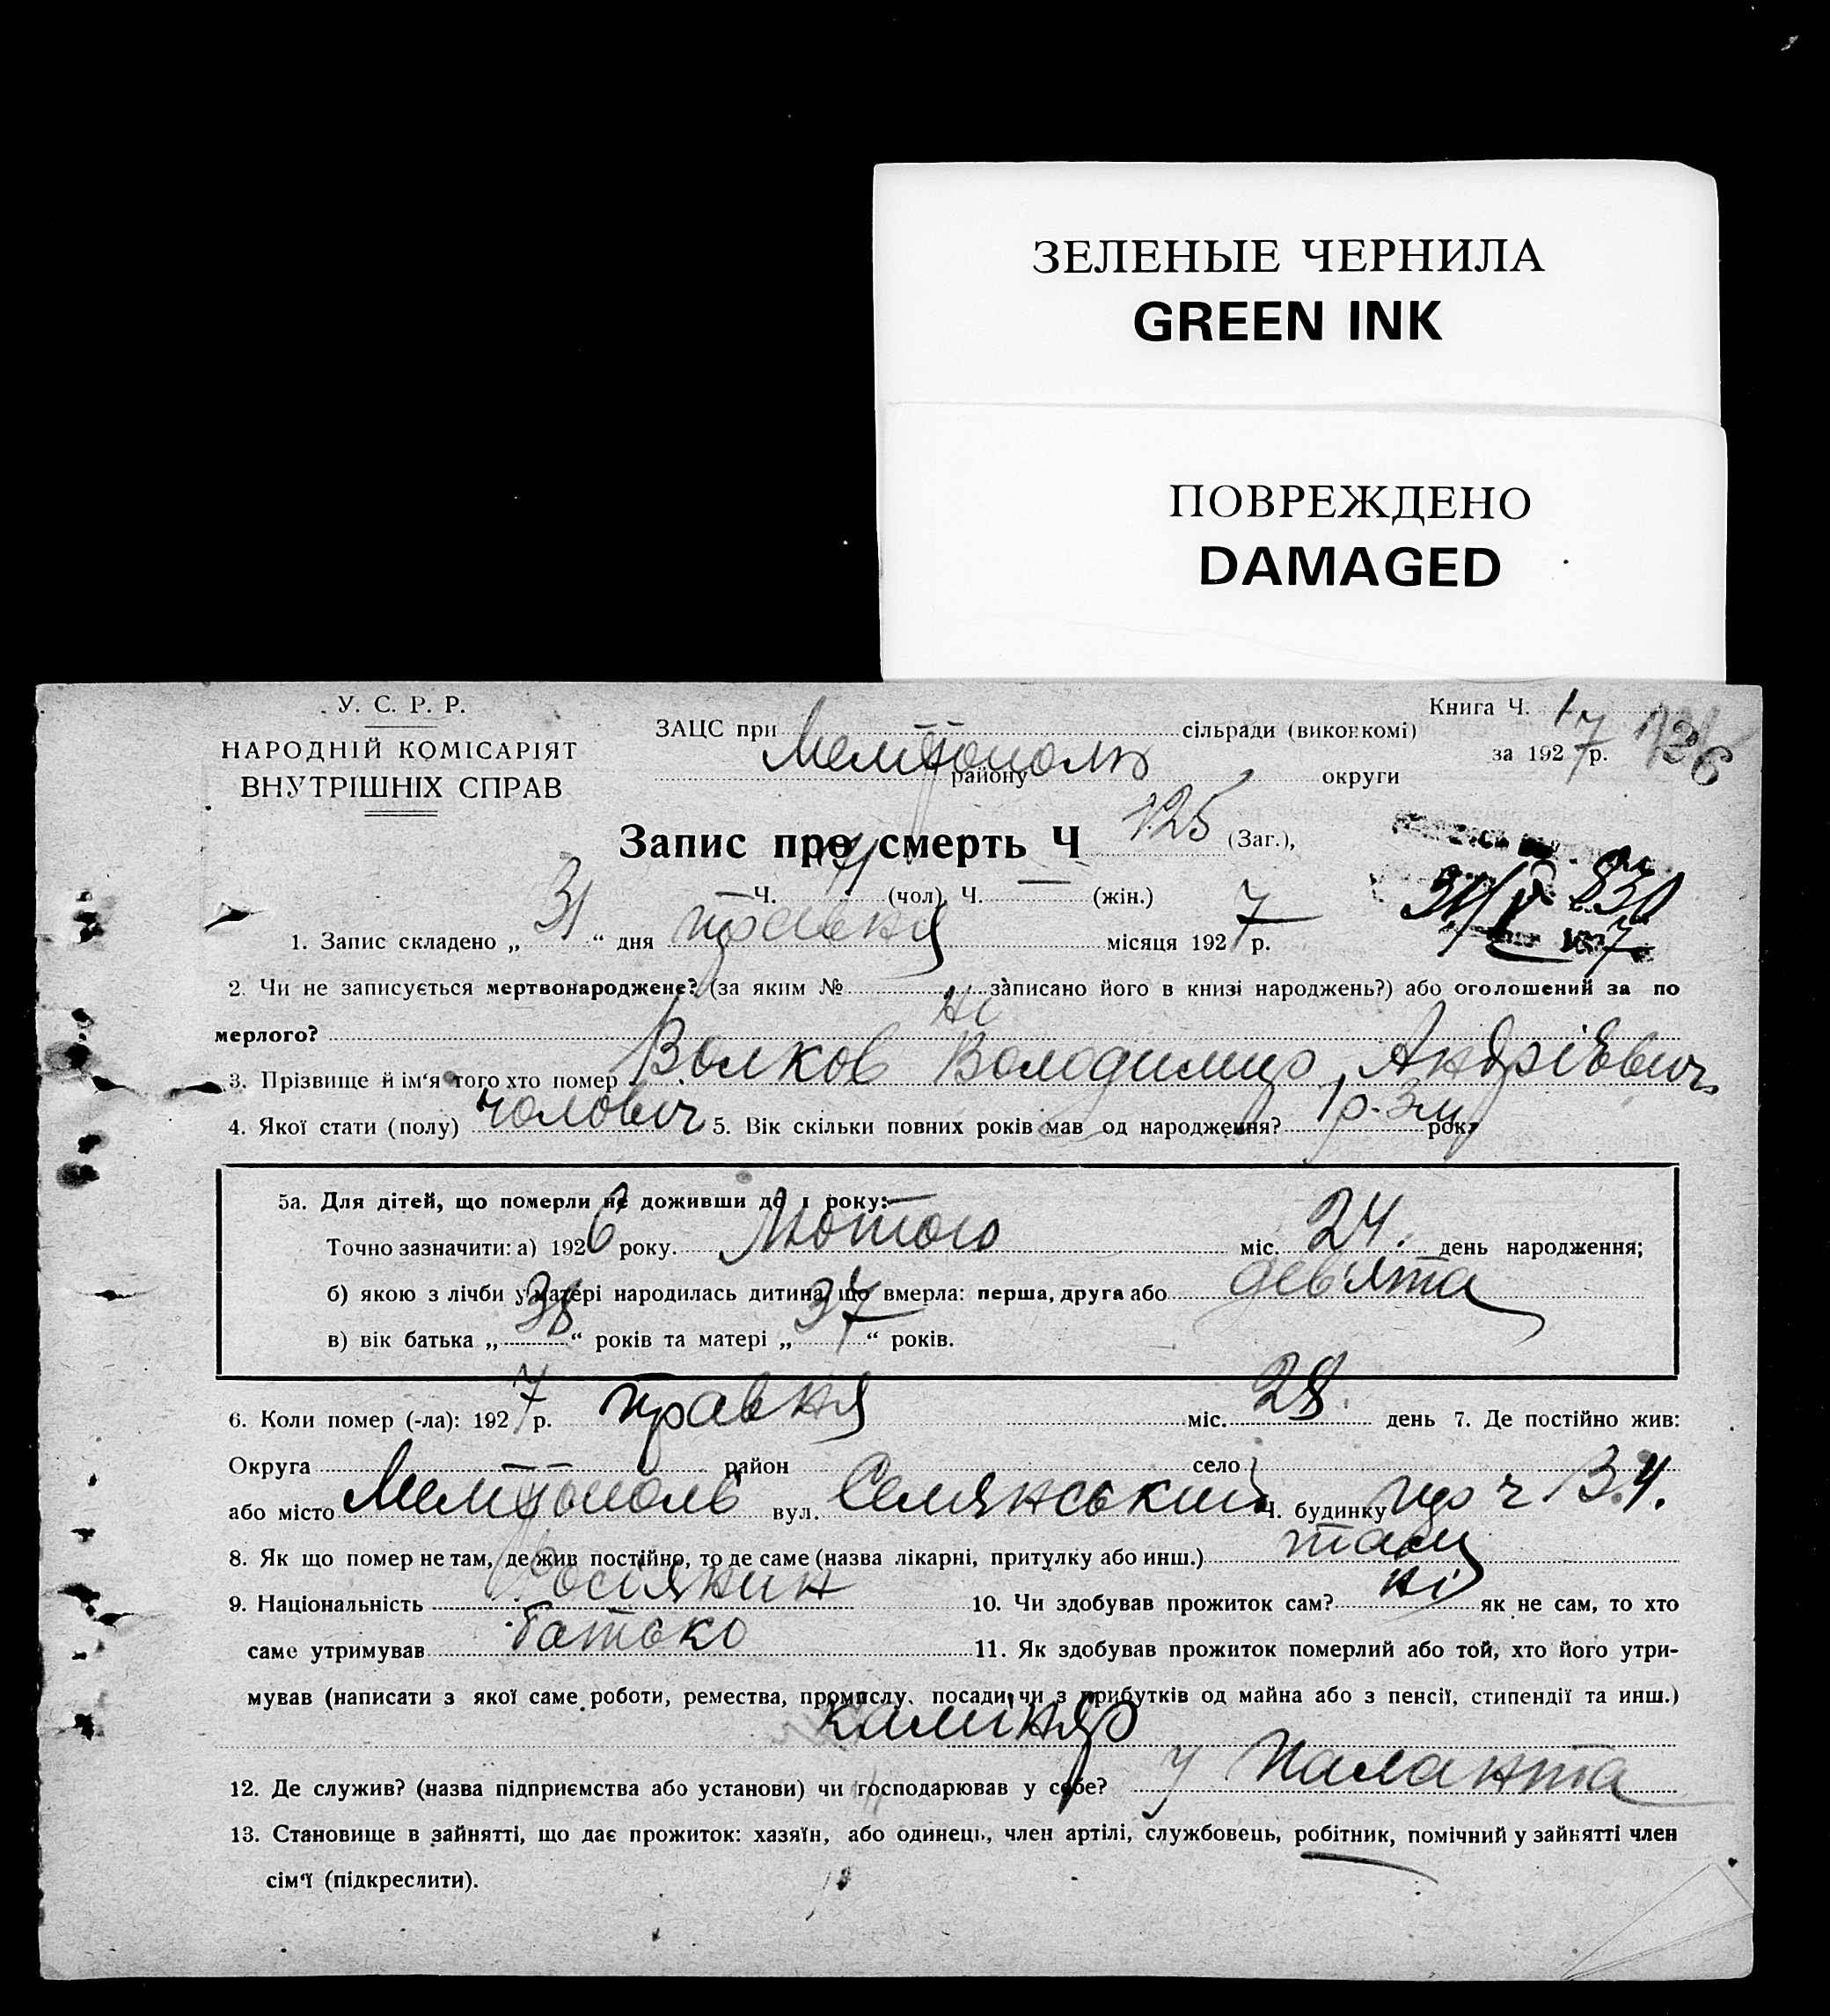 ЗЕЛЕНЫЕ ЧЕРНИЛА
GREEN INK
ПОВРЕЖДЕНО
DAMAGED
У. С. Р. Р.
НАРОДНІЙ КОМІСАРІЯТ
ВНУТРІШНІХ СПРАВ
ЗАЦС при сільради (виконкомі)
Мелітополь
району округи
Книга Ч. 1
за 1927 р. 136
Запис про смерть Ч 125 (Заг.),
Ч. 71 (чол), Ч. — (жін.)
1. Запис складено „31“ дня травня місяця 1927 р.
31/V 1927
2. Чи не записується мертвонароджене? (за яким № записано його в книзі народжень?) або оголошений за по
мерлого? ні
3. Прізвище й ім‘я того хто помер Волков Володимир Андрієвич
4. Якої стати (полу) чоловіч 5. Вік скільки повних років мав од народження? 1 р. 3 м. рок
5а. Для дітей, що померли не доживши до 1 року:
Точно зазначити: а) 1926 року. Лютого міс. 24. день народження;
б) якою з лічби у матері народилась дитина, що вмерла: перша, друга або дев'ята
в) вік батька „38“ років та матері „37“ років.
6. Коли помер (-ла): 1927 р. травня міс. 28. день 7. Де постійно жив:
Округа район село
або місто Мелітополь вул. Ч. будинку
8. Як що помер не там, де жив постійно, то де саме (назва лікарні, притулку або инш.) там
9. Національність росіянин 10. Чи здобував прожиток сам? ні як не сам, то хто
саме утримував батько 11. Як здобував прожиток померлий або той, хто його утри-
мував (написати з якої саме роботи, ремества, промислу, посади чи з прибутків од майна або з пенсії, стипендії та инш.)
каміняр
12. Де служив? (назва підприємства або установи) чи господарював у себе? у
13. Становище в зайнятті, що дає прожиток: хазяїн, або одинець, член артілі, службовець, робітник, помічний у зайнятті член
сім‘ї (підкреслити).